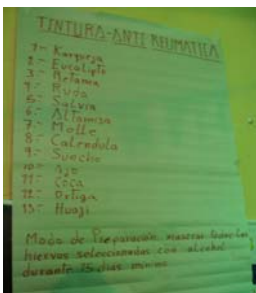 TINTURA-ANTI REUMATICA
1- Karqueja
2- Eucalipto
3- Retama
4- Ruda
5- Salvia
6- Altamisa
7- Molle
8- Calendula
9- Sueche
10- Ajo
11- Coca
12- Ortiga
13- Huaji
Modo de Preparación macerar todas las
hiervas seleccionadas con alcohol
durante 15 dias minimo